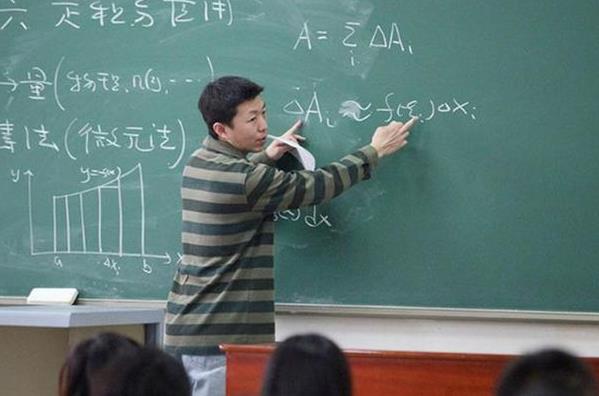 六 定积分应用)
A = Σ_i ΔA_i
→量(物理,
ΔA_i ≈ f(ξ_i)Δx_i
法(微元法)
dx
y y=f(x)
a Δx_i b x